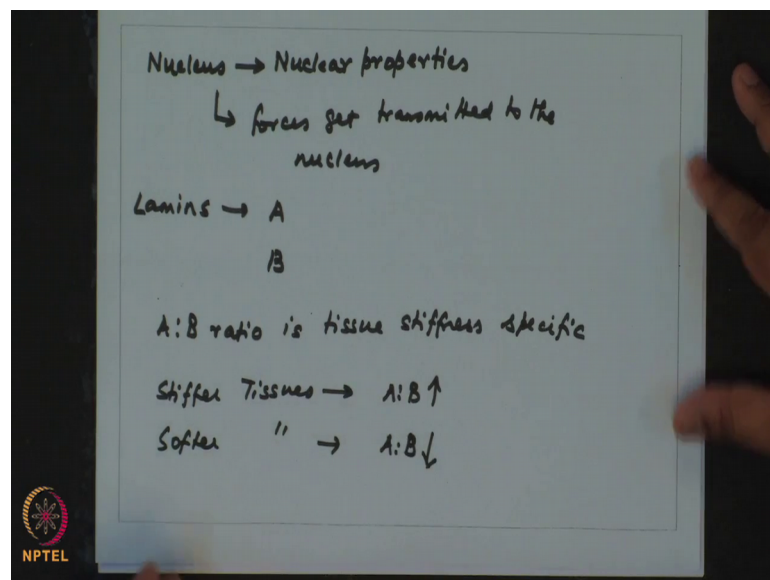 Nucleus → Nuclear properties
↳ forces get transmitted to the
nucleus
Lamins → A
B
A:B ratio is tissue stiffness specific
Stiffer Tissues → A:B ↑
Softer " → A:B ↓
NPTEL